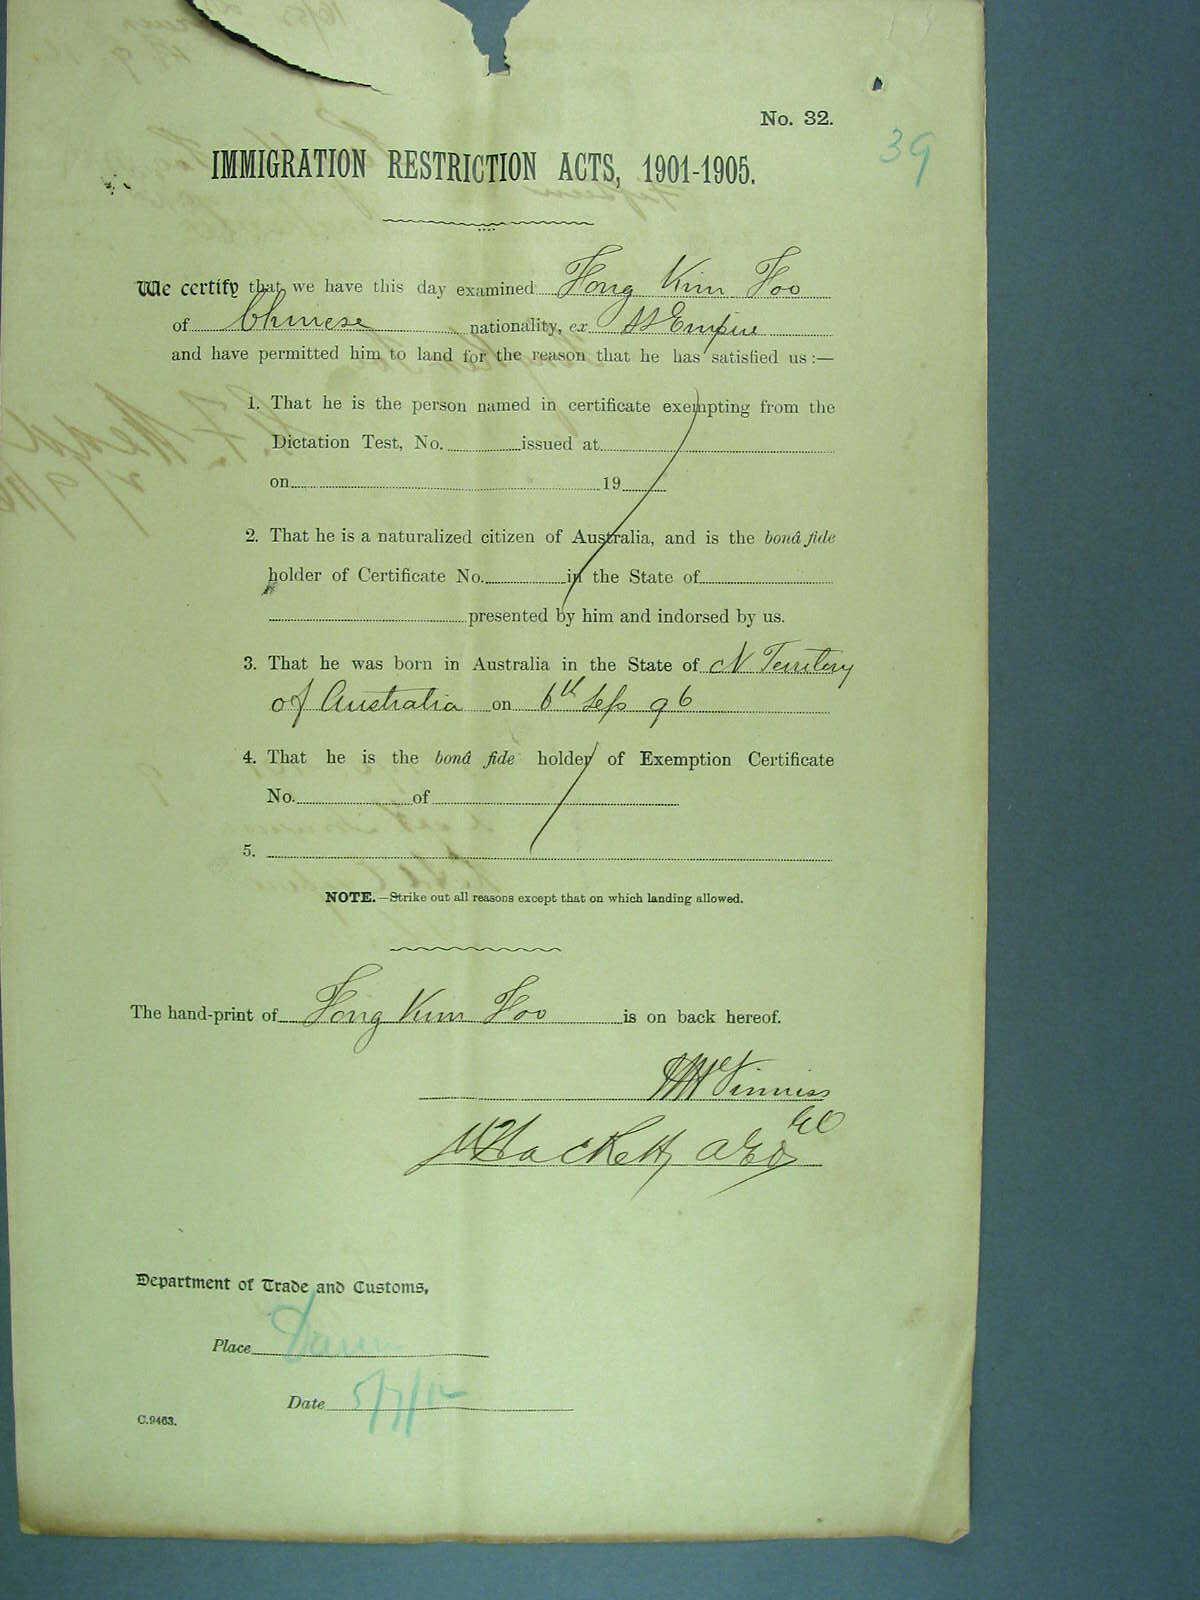 No. 32.
39
IMMIGRATION RESTRICTION ACTS, 1901-1905.
We certify that we have this day examined Fong Kim Foo
of Chinese nationality, ex SS Empire
and have permitted him to land for the reason that he has satisfied us :—
1. That he is the person named in certificate exempting from the
Dictation Test, No. issued at
on 19
2. That he is a naturalized citizen of Australia, and is the bonâ fide
holder of Certificate No. in the State of
presented by him and indorsed by us.
3. That he was born in Australia in the State of N Territory
of Australia on 6th Sep 96
4. That he is the bonâ fide holder of Exemption Certificate
No. of
5.
NOTE.—Strike out all reasons except that on which landing allowed.
The hand-print of Fong Kim Foo is on back hereof.
Finniss
Hackett
Department of Trade and Customs,
Place Darwin
Date 5/7/12
C.9463.